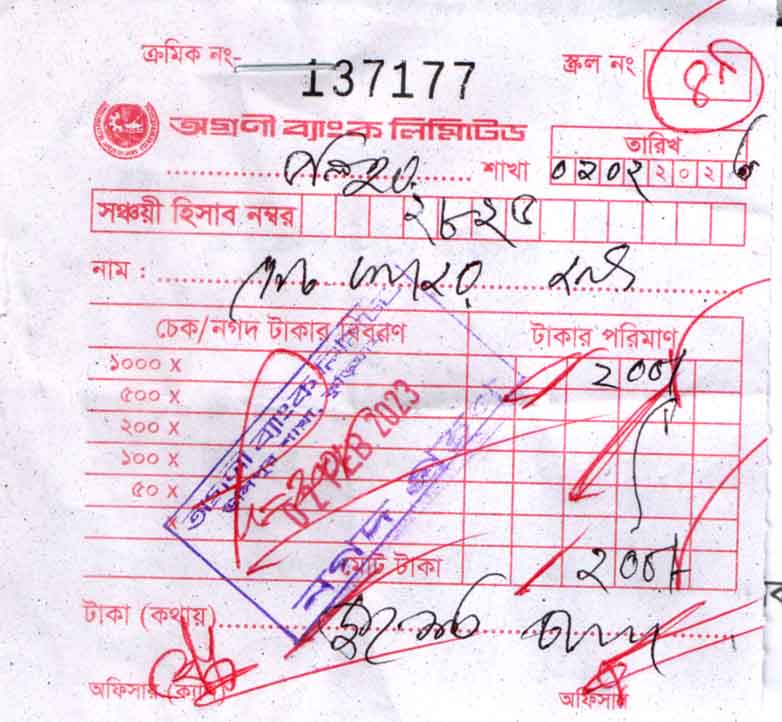 ক্রমিক নং- 137177 স্ক্রল নং ৪৭
অগ্রণী ব্যাংক লিমিটেড
শাখা তারিখ
০২০২২০২৩
সঞ্চয়ী হিসাব নম্বর ২৮২৫
নাম :
চেক/নগদ টাকার বিবরণ টাকার পরিমাণ
১০০০ X ২০০/-
৫০০ X
২০০ X
১০০ X
৫০ X
X
মোট টাকা ২০০/-
টাকা (কথায়) দুইশত টাকা
অফিসার (ক্যাশ) অফিসার
অগ্রণী ব্যাংক লিমিটেড
02 FEB 2023
নগদ গ্রহণ